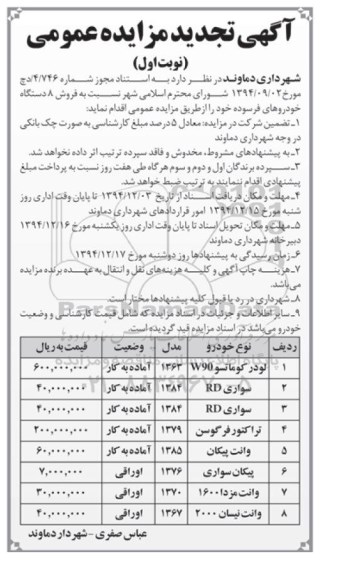 آگهی تجدید مزایده عمومی
(نوبت اول)
شهرداری دماوند در نظر دارد به استناد مجوز شماره ۴/۷۴۶/دچ
مورخ ۱۳۹۴/۰۹/۰۲ شورای محترم اسلامی شهر نسبت به فروش ۸ دستگاه
خودروهای فرسوده خود را از طریق مزایده عمومی اقدام نماید:
۱ـ تضمین شرکت در مزایده: معادل ۵ درصد مبلغ کارشناسی به صورت چک بانکی
در وجه شهرداری دماوند
۲ـ به پیشنهادهای مشروط، مخدوش و فاقد سپرده ترتیب اثر داده نخواهد شد.
۳ـ سپرده برندگان اول و دوم و سوم هرگاه طی هفت روز نسبت به پرداخت مبلغ
پیشنهادی اقدام ننمایند به ترتیب ضبط خواهد شد.
۴ـ مهلت و مکان دریافت اسناد از تاریخ ۱۳۹۴/۱۲/۰۳ تا پایان وقت اداری روز
شنبه مورخ ۱۳۹۴/۱۲/۱۵ امور قراردادهای شهرداری دماوند
۵ـ مهلت و مکان تحویل اسناد تا پایان وقت اداری روز یکشنبه مورخ ۱۳۹۴/۱۲/۱۶
دبیرخانه شهرداری دماوند
۶ـ زمان رسیدگی به پیشنهادها روز دوشنبه مورخ ۱۳۹۴/۱۲/۱۷
۷ـ هزینه چاپ آگهی و کلیه هزینه‌های نقل و انتقال به عهده برنده مزایده
می‌باشد.
۸ـ شهرداری در رد یا قبول کلیه پیشنهادها مختار است.
۹ـ سایر اطلاعات و جزئیات در اسناد مزایده که شامل قیمت کارشناسی و وضعیت
خودرو می‌باشد در اسناد مزایده قید گردیده است.
ردیف نوع خودرو مدل وضعیت قیمت به ریال
۱ لودر کوماتسو W90 ۱۳۶۳ آماده به کار ۶۰۰,۰۰۰,۰۰۰
۲ سواری RD ۱۳۸۲ آماده به کار ۴۰,۰۰۰,۰۰۰
۳ سواری RD ۱۳۸۴ آماده به کار ۴۰,۰۰۰,۰۰۰
۴ تراکتور فرگوسن ۱۳۷۹ آماده به کار ۲۰۰,۰۰۰,۰۰۰
۵ وانت پیکان ۱۳۸۵ آماده به کار ۶۰,۰۰۰,۰۰۰
۶ پیکان سواری ۱۳۷۶ اوراقی ۷,۰۰۰,۰۰۰
۷ وانت مزدا ۱۶۰۰ ۱۳۷۰ اوراقی ۳۰,۰۰۰,۰۰۰
۸ وانت نیسان ۲۰۰۰ ۱۳۶۷ اوراقی ۴۰,۰۰۰,۰۰۰
عباس صفری - شهردار دماوند